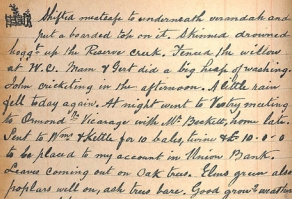 Shifted meatsafe to underneath verandah and
put a boarded top on it. Skinned drowned
hogg't up the Reserve creek. Fenced the willow
at W.C. Mam & Gert did a big heap of washing.
John cricketing in the afternoon. A little rain
fell today again. At night went to Vestry meeting
to Ormondville Vicarage with Mr Beckett, home late.
Sent to Wms & Kettle for 10 bales, twine & £10-0-0
to be placed to my account in Union Bank.
Leaves coming out on Oak trees. Elms green also
poplars well on, ash trees bare. Good growth weather